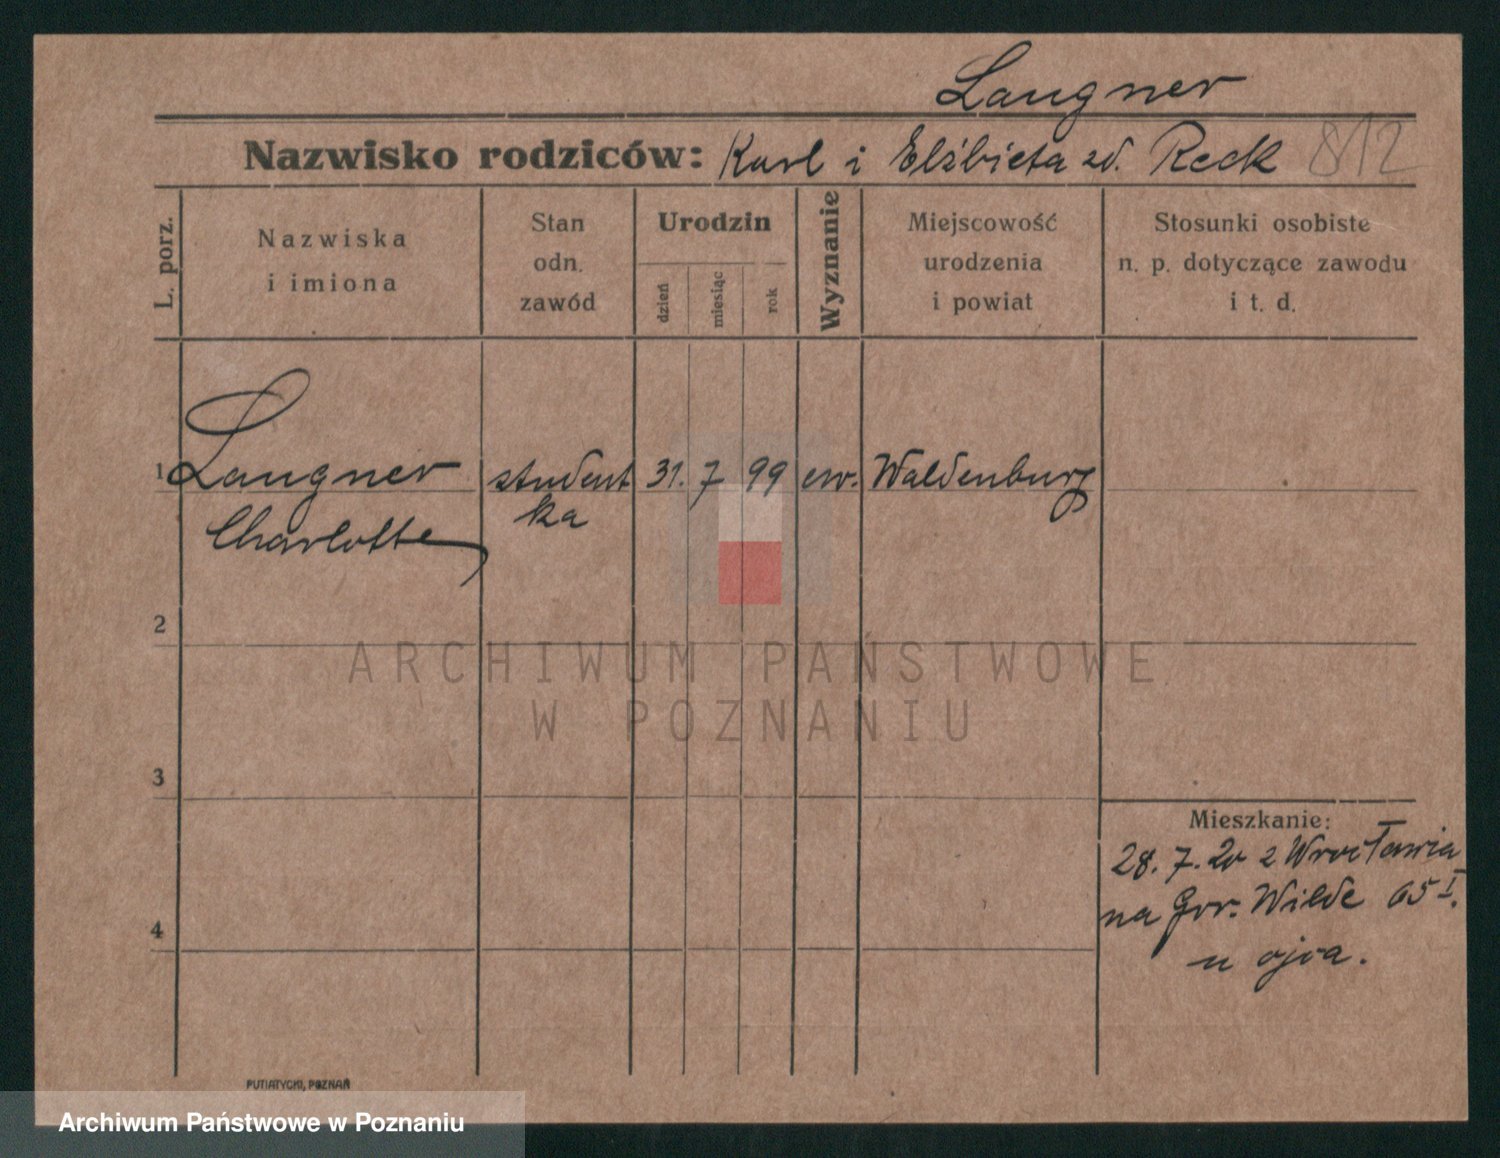 Langner
Nazwisko rodziców: Karl i Elżbieta zd. Reck 812
L. porz.
Nazwiska
i imiona
Stan
odn.
zawód
Urodzin
dzień
miesiąc
rok
Wyznanie
Miejscowość
urodzenia
i powiat
Stosunki osobiste
n. p. dotyczące zawodu
i t. d.
1 Langner student 31. 7 99 ew. Waldenburg
Charlotte ka
2
ARCHIWUM PAŃSTWOWE
W POZNANIU
3
Mieszkanie:
28. 7. 20 z Wrocławia
na Gór. Wilde 65 I.
4
u ojca.
PUTIATYCKI, POZNAŃ
Archiwum Państwowe w Poznaniu